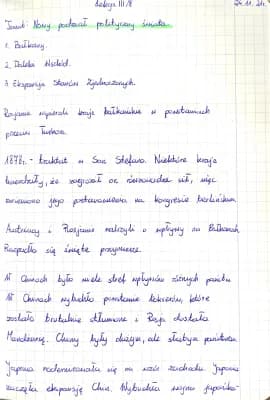 Lekcja III/8 24.11.21r.
Temat: Nowy podział polityczny świata.
1. Bałkany.
2. Daleki Wschód.
3. Ekspansja Stanów Zjednoczonych.
Rosjanie wspierali kraje bałkańskie w powstaniach
przeciw Turkom.
1878r. - traktat w San Stefano. Niektóre kraje
że sił, więc
jego postanowienia na kongresie berlińskim
Austriacy i Rosjanie walczyli o wpływy na Bałkanach
Rozpadło się święte przymierze.
W Chinach było wiele stref wpływów różnych państw
W Chinach wybuchło powstanie bokserów, które
zostało brutalnie stłumione i Rosja dostała
Mandżurię. Chiny były dużym, ale słabym państwem.
Japonia modernizowała się na wzór zachodu. Japonia
zaczęła ekspansję Chin. Wybuchła wojna japońsko-